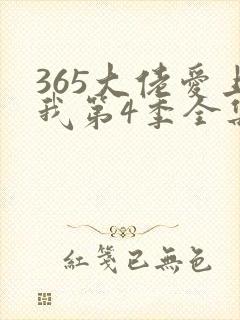 365大佬爱上
我第4季全集
紅箋已無色